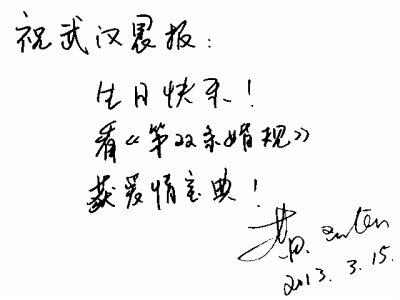 祝武汉晨报：
生日快乐！
看《第22条婚规》
获爱情宝典！
2013.3.15.